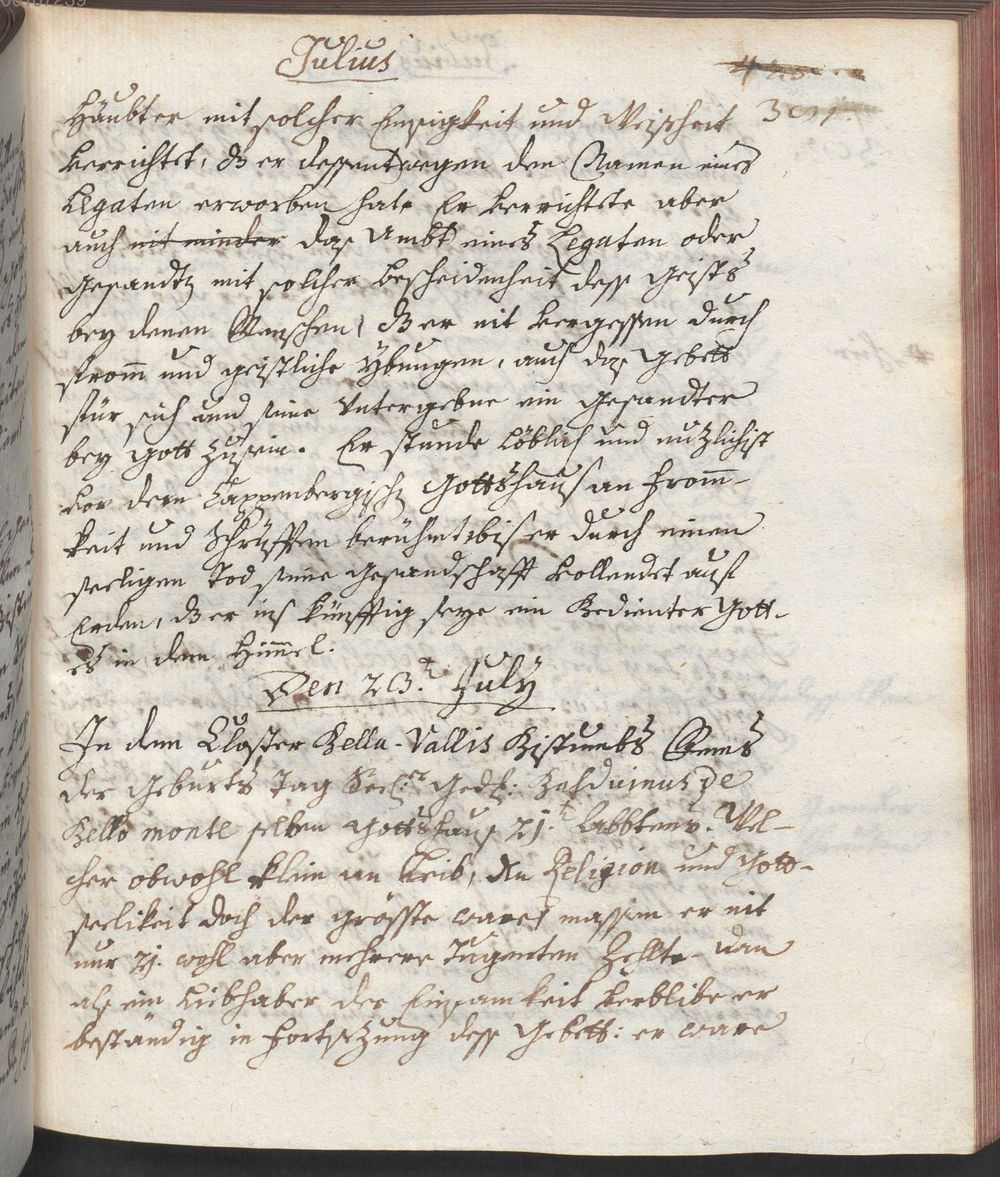 Julius
391.
Häubter mit solcher Emsigkeit und Weisheit
verrichtet, dz er dessentwegen den Namen eines
Legaten erworben hat. Er verrichtete aber
auch nit minder das Ambt eines Legaten oder
Gesandtz mit solcher bescheidenheit dess Geists
bey denen Menschen, dz er nit vergessen durch
fromm und geistliche Ybungen, auch das Gebett
für sich und seine Untergebne ein Gesandter
bey Gott zusein. Er stunde löblich und nutzlichist
vor dem Cappenbergischn Gottshaus an Fromm-
keit und Schrüfften berühmt bis er durch einen
seeligen Tod seine Gesandschafft vollendet auf
Erden, dz er ins künfftig seye ein Bedienter Gott-
es in dem Himmel.
Den 23.t July
In dem Closter Bella-Vallis Bistumbs
der Geburts Tag Seel:r Gedh:
Bello monte selben Gottshaus 21.t Abbtens. Wel-
cher obwohl klein am Leib, an Religion und Gott-
seelikeit doch der grösste ware, massen er nit
nur 21. wohl aber mehrere Tugenten zehlte. dan
als ein Liebhaber der Einsamkeit verblibe er
beständig in fortsezung dess Gebetts: er ware